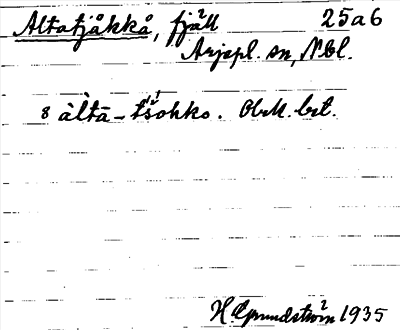 Altatjåkkå, fjäll 25a6
Arjepl. sn, Nbl.
8 àltā-tšohko. Obrk. brt.
H. Grundström 1935